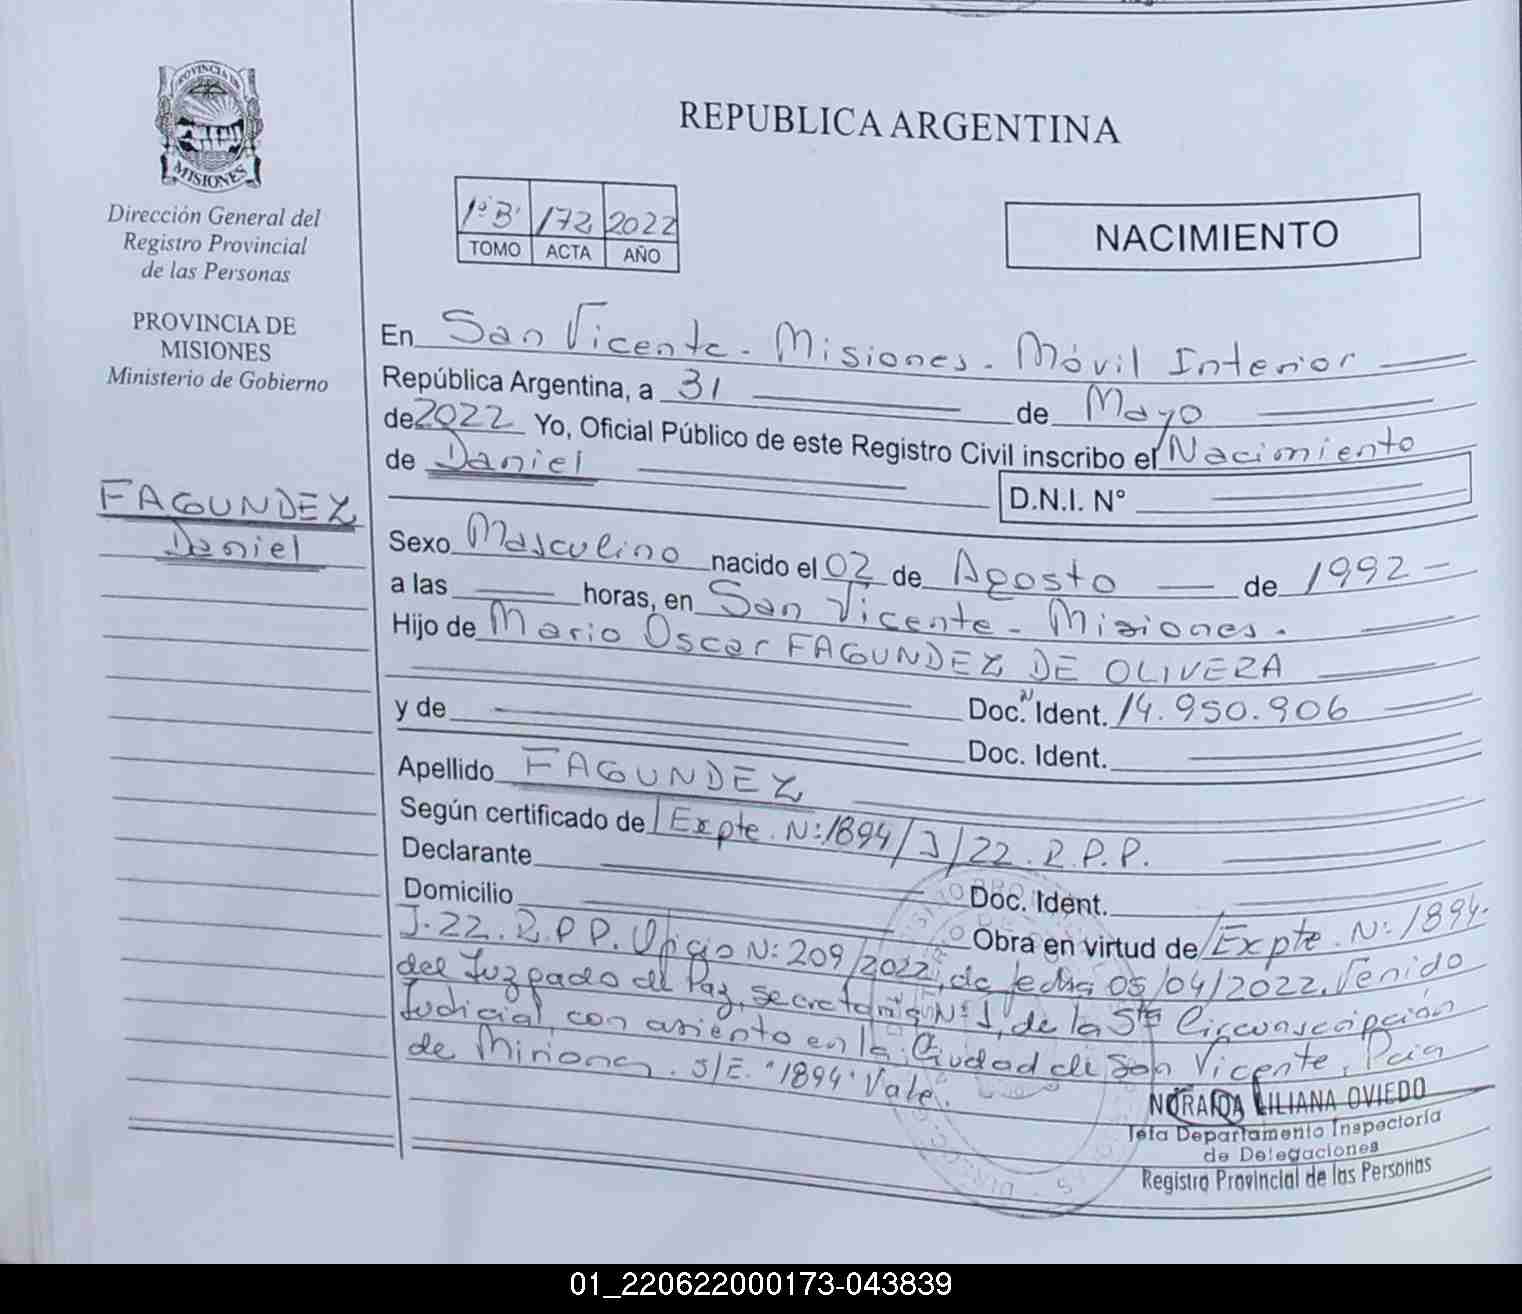 PROVINCIA DE
MISIONES
Dirección General del
Registro Provincial
de las Personas
PROVINCIA DE
MISIONES
Ministerio de Gobierno
FAGUNDEZ
Daniel
REPUBLICA ARGENTINA
1º"B" 172 2022
TOMO ACTA AÑO
NACIMIENTO
En San Vicente - Misiones - Móvil Interior
República Argentina, a 31 de Mayo
de 2022 Yo, Oficial Público de este Registro Civil inscribo el Nacimiento
de Daniel
D.N.I. N°
Sexo Masculino nacido el 02 de Agosto de 1992 -
a las horas, en San Vicente - Misiones.
Hijo de Mario Oscar FAGUNDEZ DE OLIVERA
Doc. Ident. 14.950.906
y de
Doc. Ident.
Apellido FAGUNDEZ
Según certificado de Expte. N: 1894/J/22. R.P.P.
Declarante
Doc. Ident.
Domicilio
Obra en virtud de Expte. N: 1894.
J.22. R.P.P. Oficio N: 209/2022, de fecha 05/04/2022. Venido
del Juzgado de Paz, secretaria Nº 1, de la 5ta Circunscripción
Judicial, con asiento en la Ciudad de San Vicente, Pcia
de Misiones. S/E. "1894" Vale.
NORA LILIANA OVIEDO
Jefa Departamento Inspectoría
de Delegaciones
Registro Provincial de las Personas
01_220622000173-043839